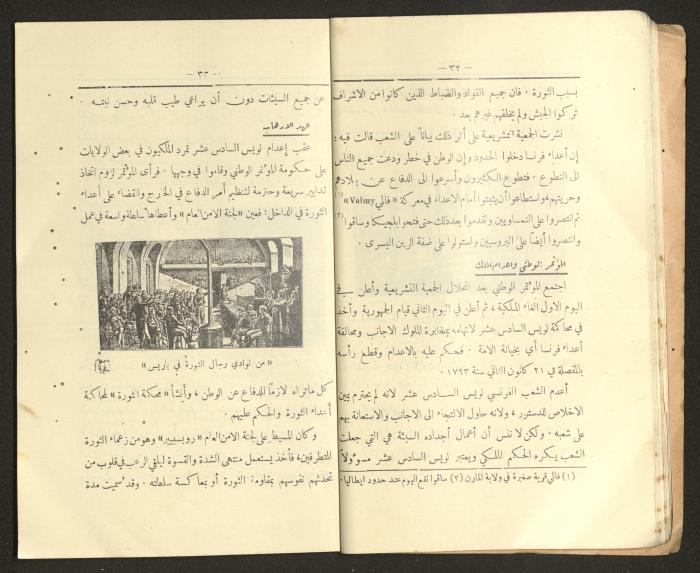 — ٣٢ —
بسبب الثورة . فان جميع القواد والضباط الذين كانوا من الاشراف
تركوا الجيش ولم يخلفهم غيرهم بعد .
نشرت الجمعية التشريعية على أثر ذلك بياناً على الشعب قالت فيه :
إن أعداء فرنسا دخلوا الحدود وإن الوطن في خطر ودعت جميع الناس
الى التطوع . فتطوع الكثيرون وأسرعوا الى الدفاع عن بلادهم
وحريتهم، واستطاعوا أن يثبتوا أمام الاعداء في معركة « فالمي Valmy » (١)
ثم انتصروا على النمساويين وتقدموا بعد ذلك حتى فتحوا بلجيكا وساقوا (٢)
وانتصروا أيضاً على البروسيين واستولوا على ضفة الرين اليسرى .
المؤتمر الوطني واعدام الملك
اجتمع المؤتمر الوطني بعد انحلال الجمعية التشريعية وأعلن في
اليوم الاول الغاء الملكية ، ثم أعلن في اليوم الثاني قيام الجمهورية وأخذ
في محاكمة لويس السادس عشر لاتهامه بمخابرة الملوك الاجانب ومحالفة
أعداء فرنسا أي بخيانة الامة . فحكم عليه بالاعدام وقطع رأسه
بالمقصلة في ٢١ كانون الثاني سنة ١٧٩٣
أعدم الشعب الفرنسي لويس السادس عشر لانه لم يحترم يمين
الاخلاص للدستور ، ولانه حاول الالتجاء الى الاجانب والاستعانة بهم
على شعبه . ولكن لا ننس أن أعمال أجداده السيئة هي التي جعلت
الشعب يكره الحكم الملكي ويعتبر لويس السادس عشر مسؤولاً
(١) فالمي قرية صغيرة في ولاية المارن (٢) ساقوا تقع اليوم عند حدود ايطاليا .
— ٣٣ —
عن جميع السيئات دون أن يراعي طيب قلبه وحسن نيته .
عهد الارهاب
عقب إعدام لويس السادس عشر تمرد الملكيون في بعض الولايات
على حكومة المؤتمر الوطني وقاموا في وجهها . فرأى المؤتمر لزوم اتخاذ
تدابير سريعة وحازمة لتنظيم أمر الدفاع في الخارج والقضاء على أعداء
الثورة في الداخل : فعين « لجنة الامن العام » وأعطاها سلطة واسعة في عمل
« من نوادي رجال الثورة في باريس »
كل ما تراه لازماً للدفاع عن الوطن ، وأنشأ « محكمة الثورة » لمحاكمة
أعداء الثورة والحكم عليهم .
وكان المسيطر على لجنة الامن العام « روبسبيير » وهو من زعماء الثورة
المتطرفين، فأخذ يستعمل منتهى الشدة والقسوة ليلقي الرعب في قلوب من
تحدثهم نفوسهم بمقاومة الثورة أو بمعاكسة سلطته . وقد سميت مدة